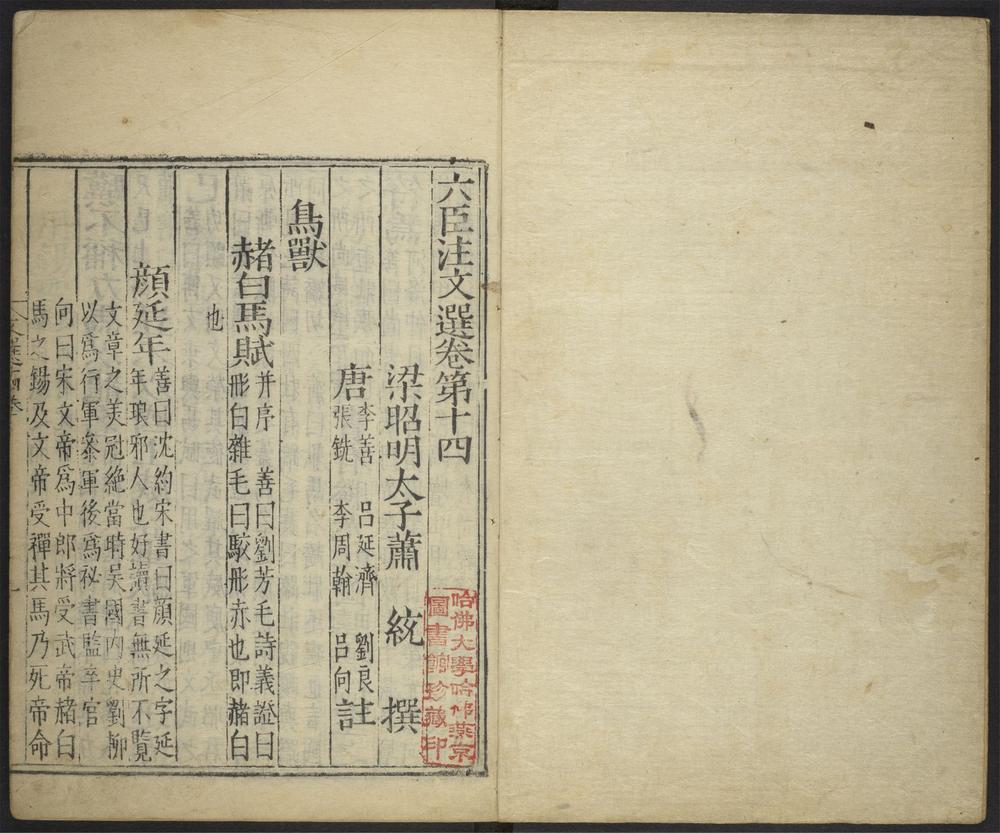 六臣注文選卷第十四
梁昭明太子蕭 統 撰
唐 李善 呂延濟 劉良
張銑 李周翰 呂向 註
鳥獸
赭白馬賦 并序 善曰劉芳毛詩義證曰
彤白雜毛曰駁彤赤也即赭白
也
顏延年 善曰沈約宋書曰顏延之字延
年琅邪人也好讀書無所不覽
文章之美冠絶當時吴國内史劉柳
以爲行軍叅軍後爲祕書監卒官
向曰宋文帝爲中郎將受武帝赭白
馬之錫及文帝受禪其馬乃死帝命
哈佛大學哈佛燕京
圖書館珍藏印